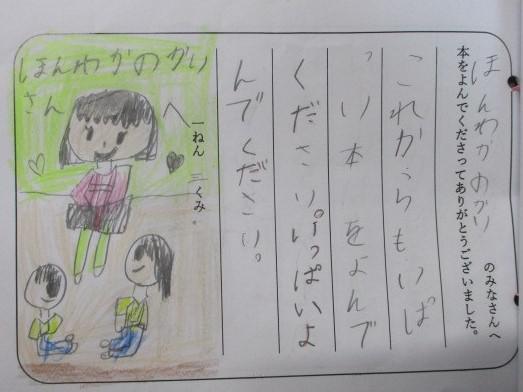 ほんわかのかい のみなさんへ
本をよんでくださってありがとうございました。
これからもいぱ
っい本をよんで
ください。いっぱいよ
んでください。
一ねん 三くみ.
ほんわかのかい
さんへ